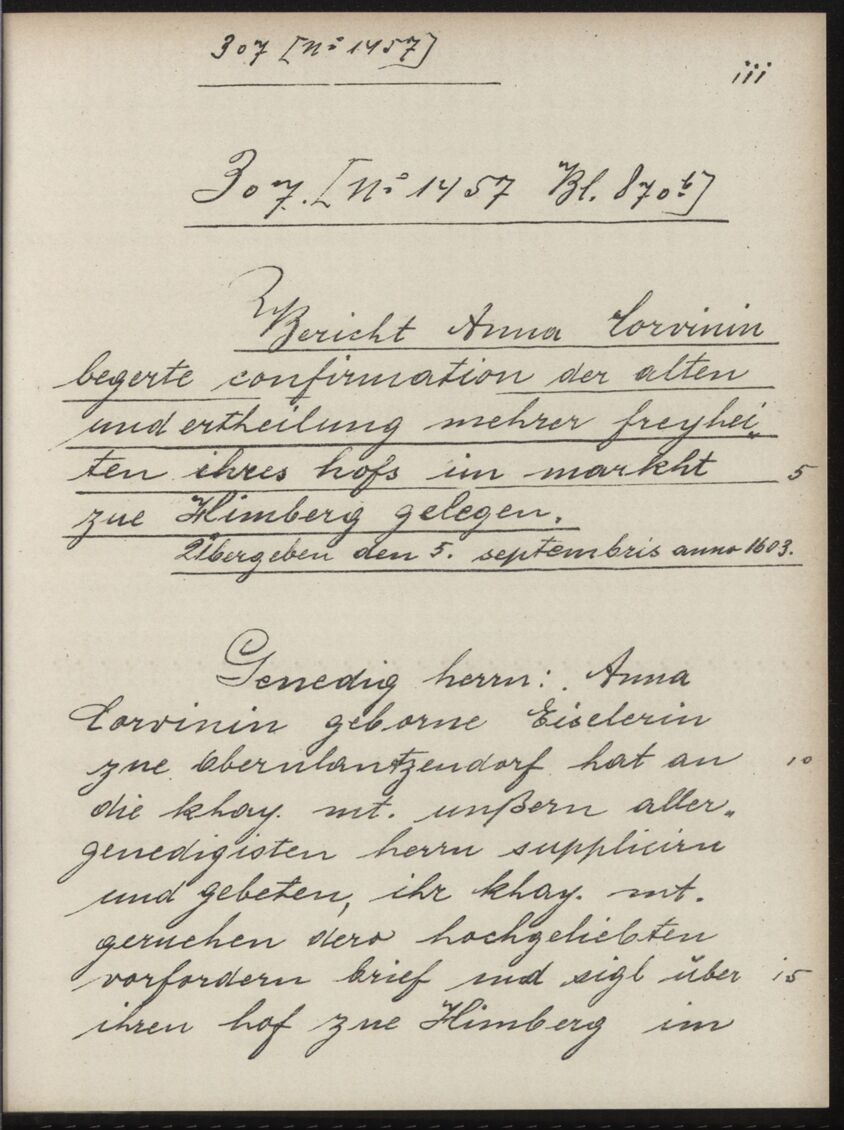 307 [No 1457]
iii
307. [No 1457 Bl. 870b]
Bericht Anna Corvinin
begerte confirmation der alten
und ertheilung mehrer freyhei„
ten ihres hofs im markht 5
zue Himberg gelegen.
Übergeben den 5. septembris anno 1603.
Genedig herrn: Anna
Corvinin geborne Eiselerin
zue Obernlantzendorf hat an 10
die khay. mt. unßern aller„
genedigisten herrn supplicirn
und gebeten, ihr khay. mt.
geruehen dero hochgeliebten
vorfordern brief und sigl über 15
ihren hof zue Himberg im